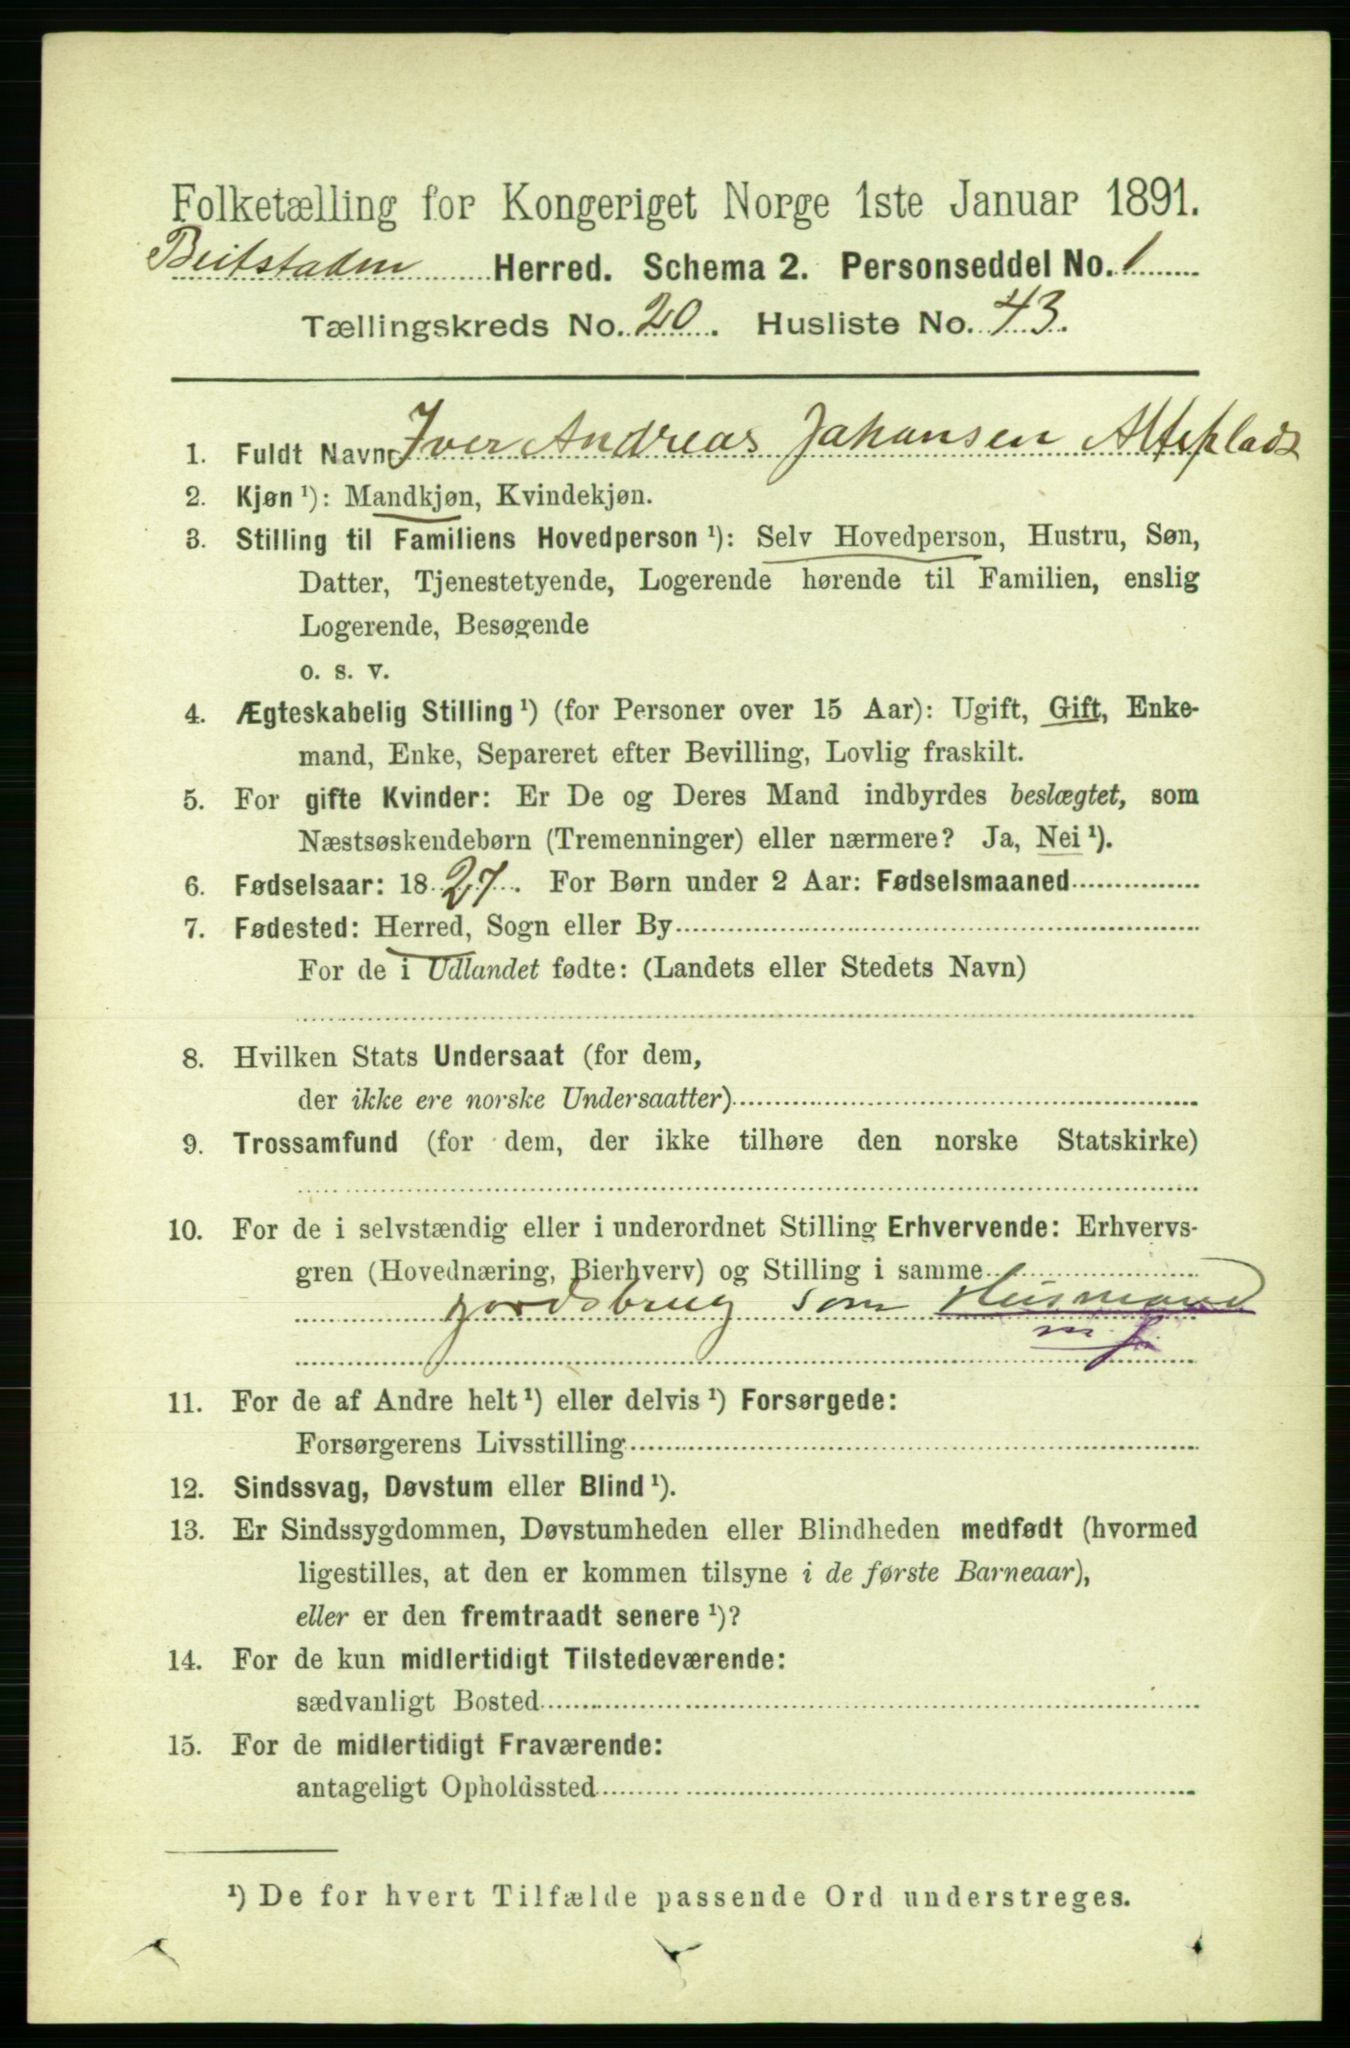 Folketælling for Kongeriget Norge 1ste Januar 1891.
Beitstaden Herred. Schema 2. Personseddel No. 1
Tællingskreds No. 20. Husliste No. 43.
1. Fuldt Navn Iver Andreas Johansen
2. Kjøn ¹): Mandkjøn, Kvindekjøn.
3. Stilling til Familiens Hovedperson ¹): Selv Hovedperson, Hustru, Søn,
Datter, Tjenestetyende, Logerende hørende til Familien, enslig
Logerende, Besøgende
o. s. v.
4. Ægteskabelig Stilling ¹) (for Personer over 15 Aar): Ugift, Gift, Enke-
mand, Enke, Separeret efter Bevilling, Lovlig fraskilt.
5. For gifte Kvinder: Er De og Deres Mand indbyrdes beslægtet, som
Næstsøskendebørn (Tremenninger) eller nærmere? Ja, Nei ¹).
6. Fødselsaar: 1827. For Børn under 2 Aar: Fødselsmaaned
7. Fødested: Herred, Sogn eller By
For de i Udlandet fødte: (Landets eller Stedets Navn)
8. Hvilken Stats Undersaat (for dem,
der ikke ere norske Undersaatter)
9. Trossamfund (for dem, der ikke tilhøre den norske Statskirke)
10. For de i selvstændig eller i underordnet Stilling Erhvervende: Erhvervs-
gren (Hovednæring, Bierhverv) og Stilling i samme
Jordsbrug som Husmand
m. J.
11. For de af Andre helt ¹) eller delvis ¹) Forsørgede:
Forsørgerens Livsstilling
12. Sindssvag, Døvstum eller Blind ¹).
13. Er Sindssygdommen, Døvstumheden eller Blindheden medfødt (hvormed
ligestilles, at den er kommen tilsyne i de første Barneaar),
eller er den fremtraadt senere ¹)?
14. For de kun midlertidigt Tilstedeværende:
sædvanligt Bosted
15. For de midlertidigt Fraværende:
antageligt Opholdssted
¹) De for hvert Tilfælde passende Ord understreges.